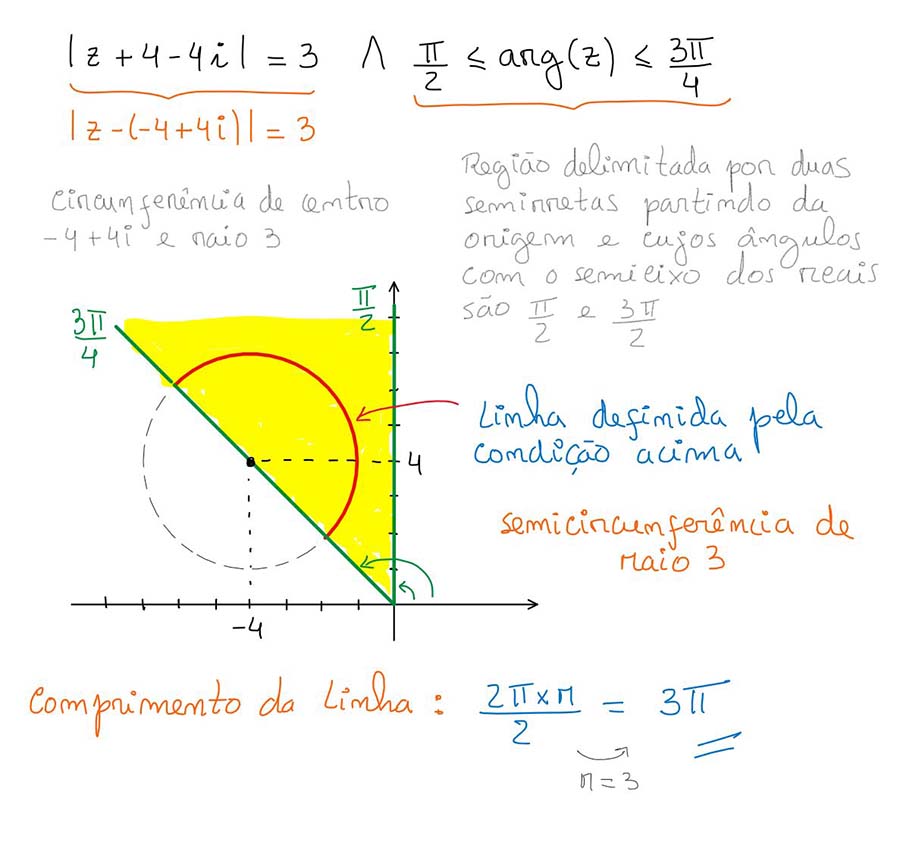 |z+4-4i| = 3 ∧ π/2 ≤ arg(z) ≤ 3π/4
|z-(-4+4i)| = 3
Circunferência de centro
-4+4i e raio 3
Região delimitada por duas
semirretas partindo da
origem e cujos ângulos
com o semieixo dos reais
são π/2 e 3π/2
π/2
3π/4
Linha definida pela
condição acima
4
semicircunferência de
raio 3
-4
Comprimento da Linha: 2π×r/2 = 3π
r=3